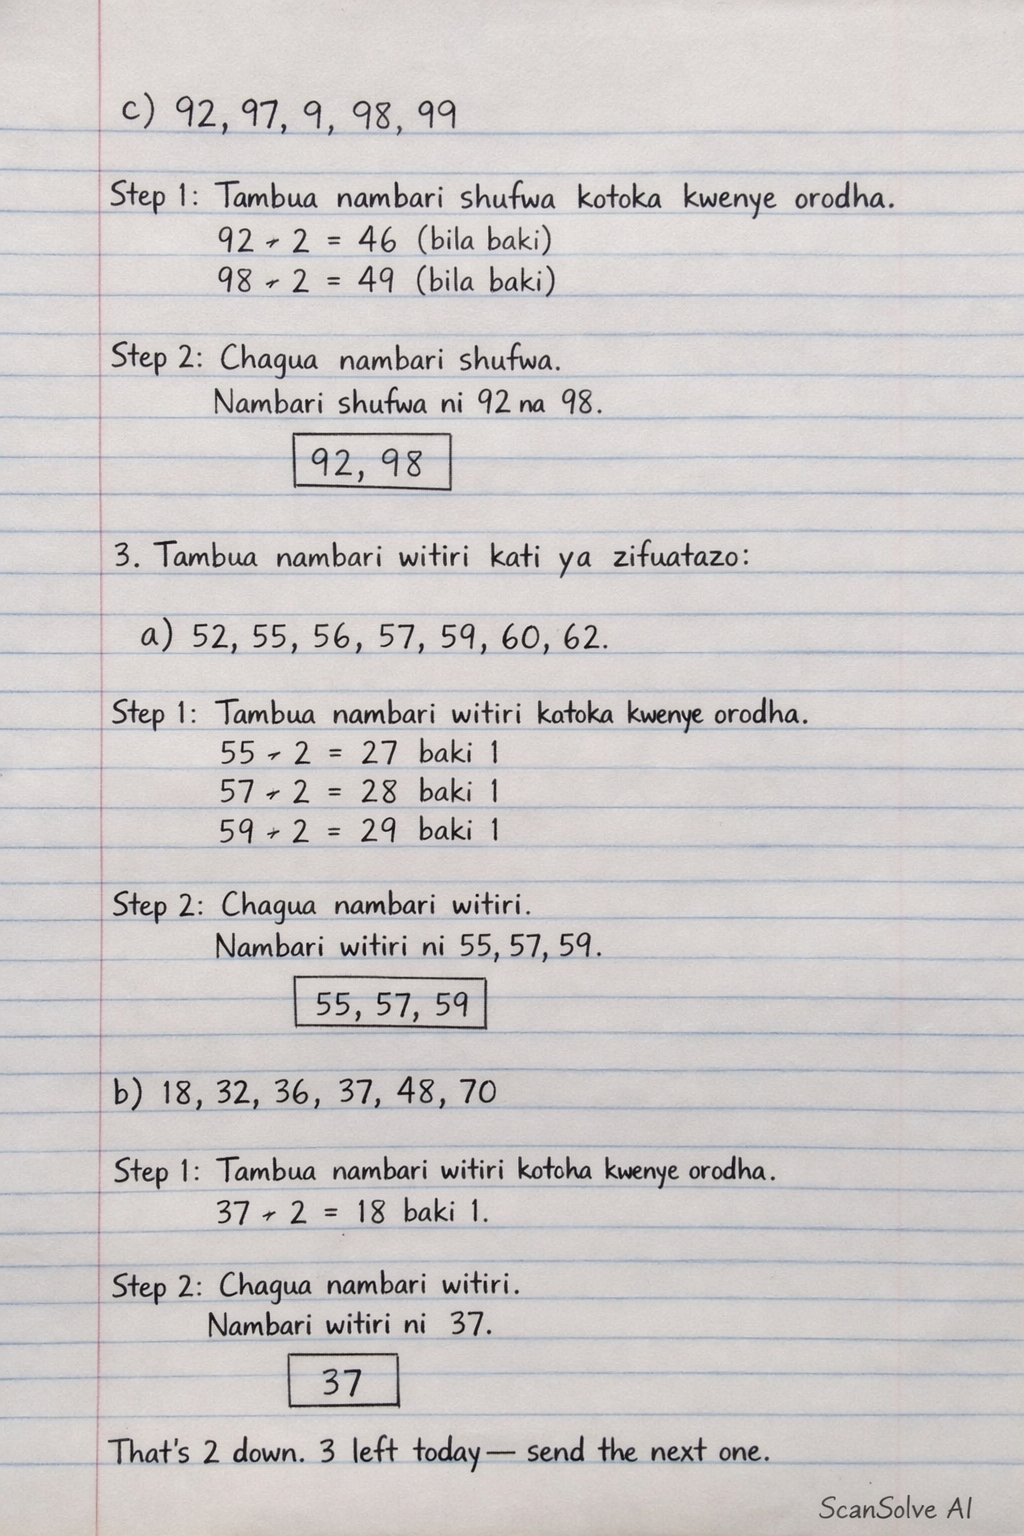 c) 92, 97, 9, 98, 99
Step 1: Tambua nambari shufwa kotoka kwenye orodha.
92 ÷ 2 = 46 (bila baki)
98 ÷ 2 = 49 (bila baki)
Step 2: Chagua nambari shufwa.
Nambari shufwa ni 92 na 98.
92, 98
3. Tambua nambari witiri kati ya zifuatazo:
a) 52, 55, 56, 57, 59, 60, 62.
Step 1: Tambua nambari witiri katoka kwenye orodha.
55 ÷ 2 = 27 baki 1
57 ÷ 2 = 28 baki 1
59 ÷ 2 = 29 baki 1
Step 2: Chagua nambari witiri.
Nambari witiri ni 55, 57, 59.
55, 57, 59
b) 18, 32, 36, 37, 48, 70
Step 1: Tambua nambari witiri kotcha kwenye orodha.
37 ÷ 2 = 18 baki 1.
Step 2: Chagua nambari witiri.
Nambari witiri ni 37.
37
That's 2 down. 3 left today— send the next one.
ScanSolve AI